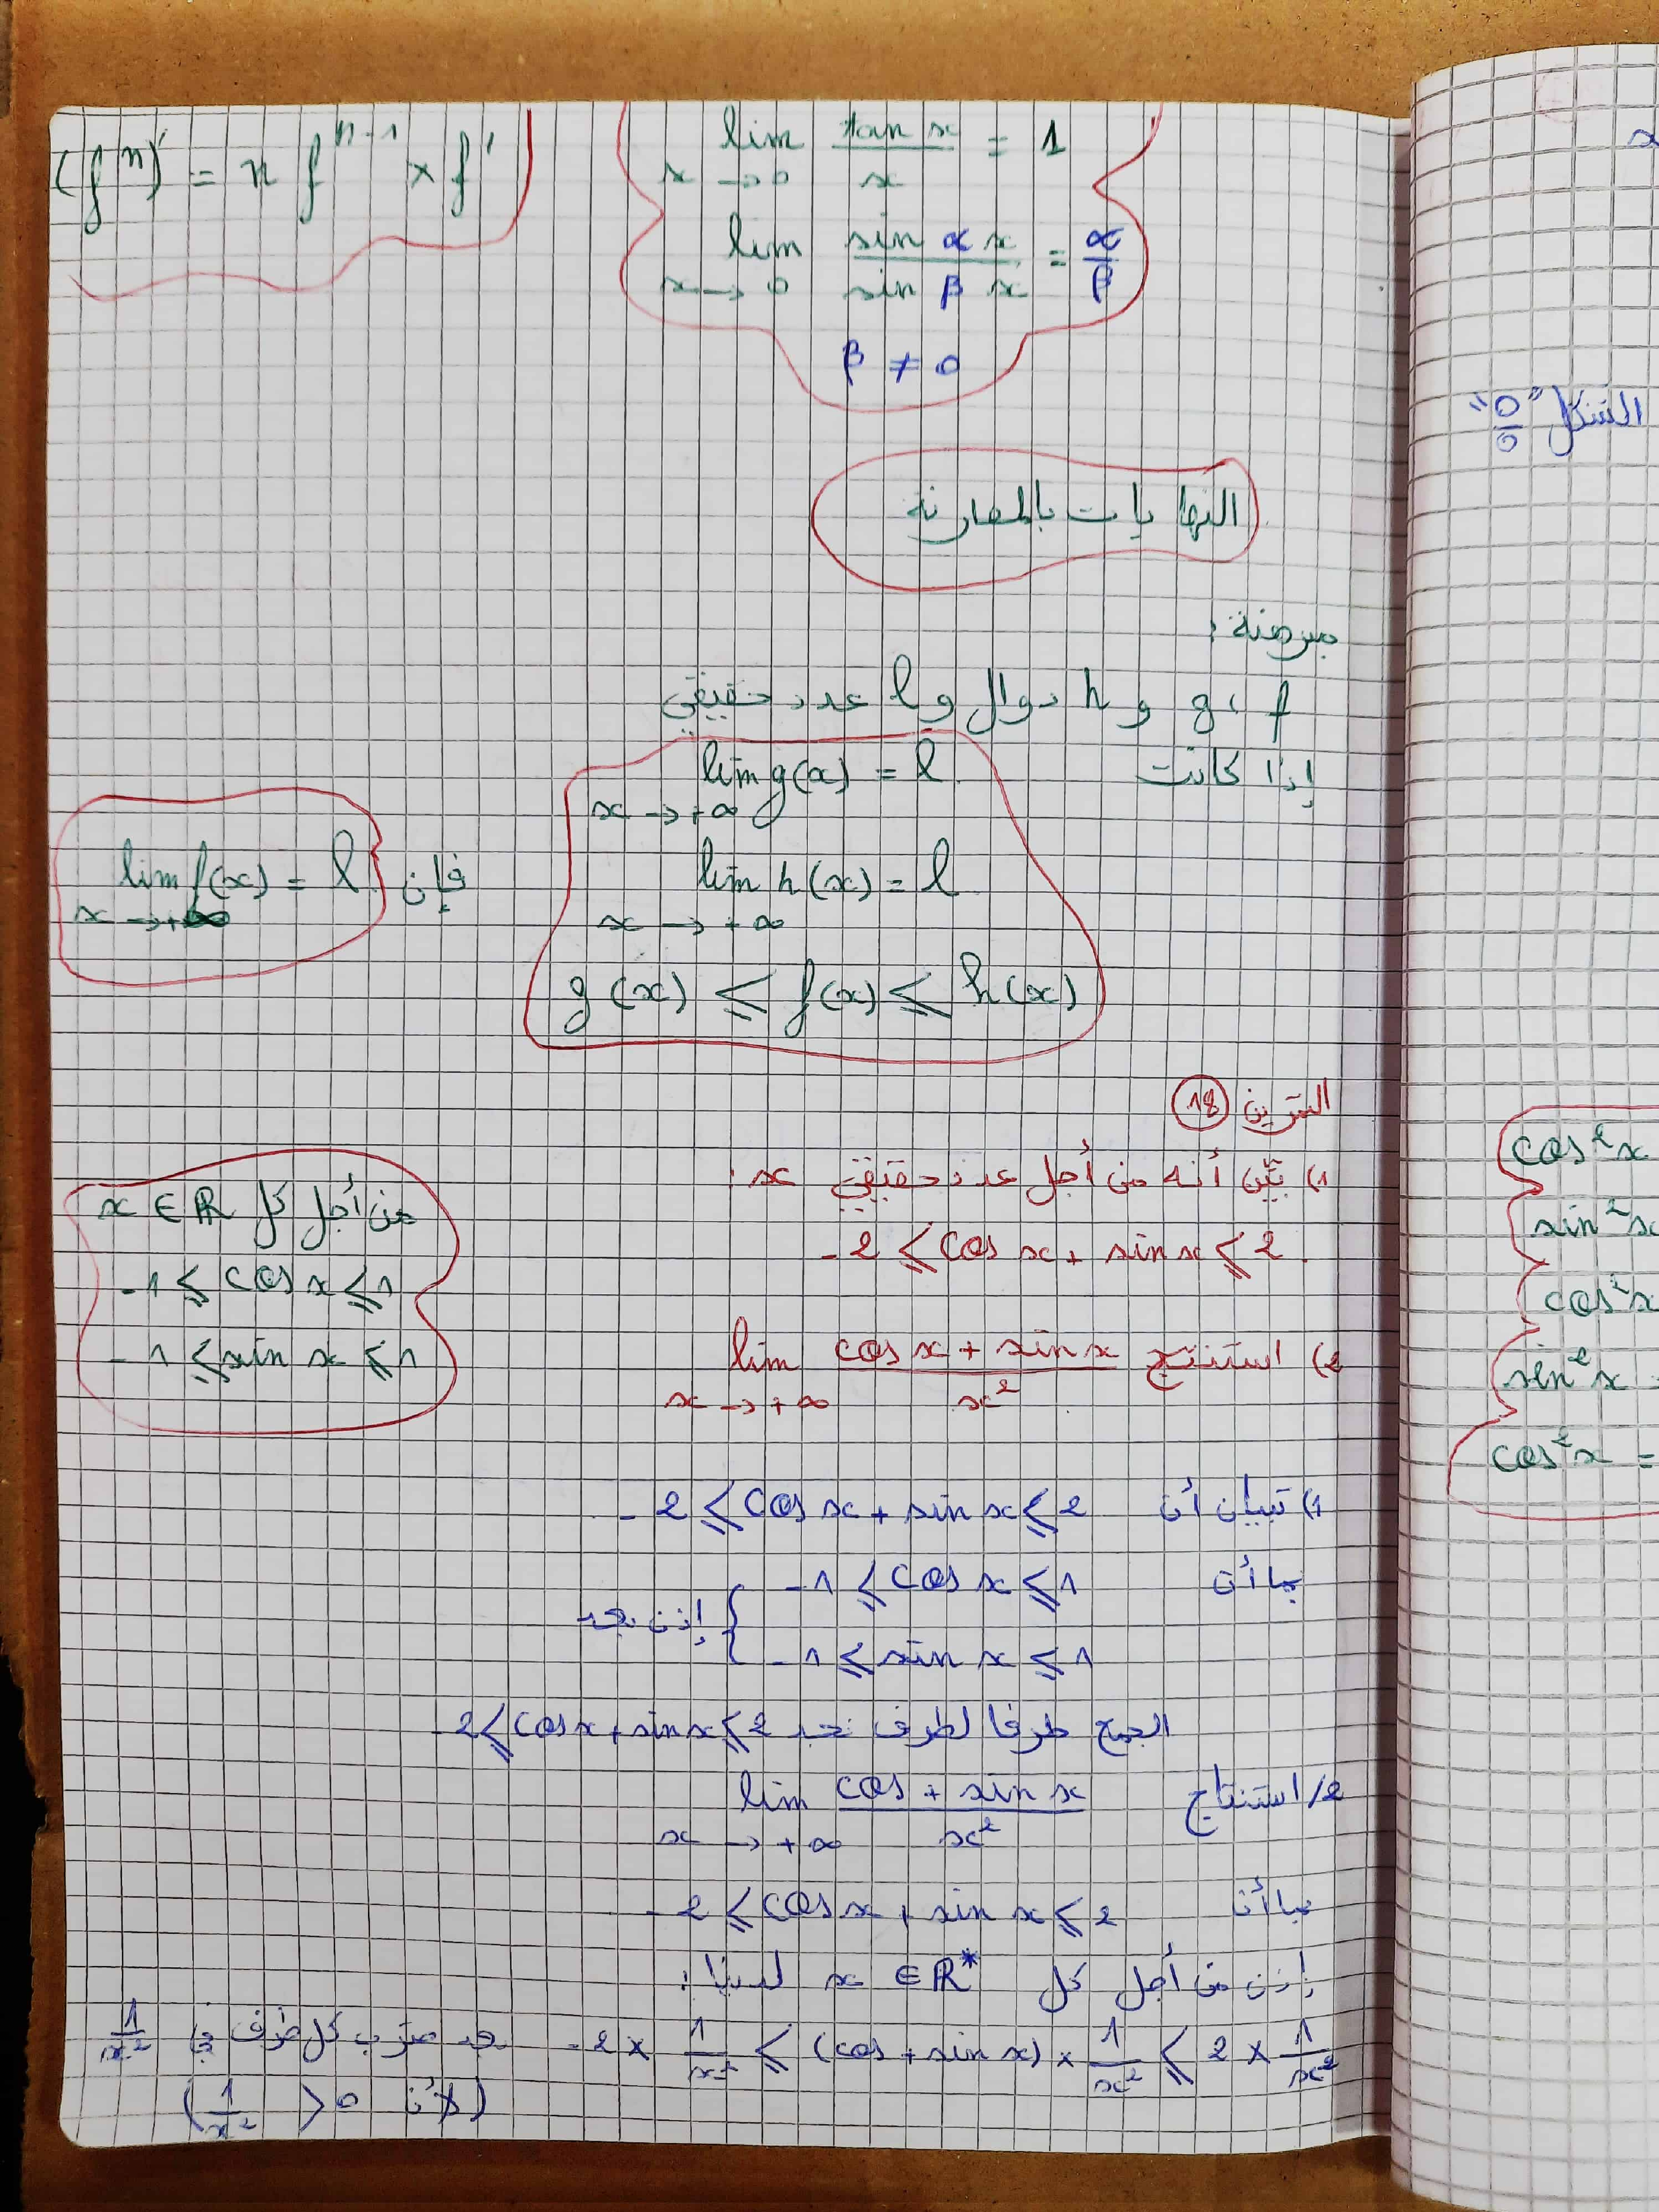 (fⁿ)' = n fⁿ⁻¹ × f'
lim tan x / x = 1
x → 0
lim sin αx / sin βx = α/β
x → 0
β ≠ 0
النهايات بالمقارنة
مبرهنة :
f ، g و h دوال و l عدد حقيقي
إذا كانت lim g(x) = l
x → +∞
lim h(x) = l
x → +∞
g(x) ⩽ f(x) ⩽ h(x)
فإن lim f(x) = l
x → +∞
التمرين 18
1) بيّن أنه من أجل عدد حقيقي x :
-2 ⩽ cos x + sin x ⩽ 2.
2) استنتج lim (cos x + sin x) / x²
x → +∞
من أجل كل x ∈ ℝ
-1 ⩽ cos x ⩽ 1
-1 ⩽ sin x ⩽ 1
1) تبيان أن -2 ⩽ cos x + sin x ⩽ 2
بما أن -1 ⩽ cos x ⩽ 1
-1 ⩽ sin x ⩽ 1 } إذن نجد
الجمع طرفا لطرف نجد -2 ⩽ cos x + sin x ⩽ 2
2/ استنتاج lim (cos + sin x) / x²
x → +∞
بما أن -2 ⩽ cos x + sin x ⩽ 2
إذن من أجل كل x ∈ ℝ* لدينا :
-2 × 1/x² ⩽ (cos + sin x) × 1/x² ⩽ 2 × 1/x²
ضرب كل طرف في 1/x²
(لأن 1/x² > 0)
x
الشكل "0/0"
cos²x
sin²x
cos²x
sin²x
cos²x =